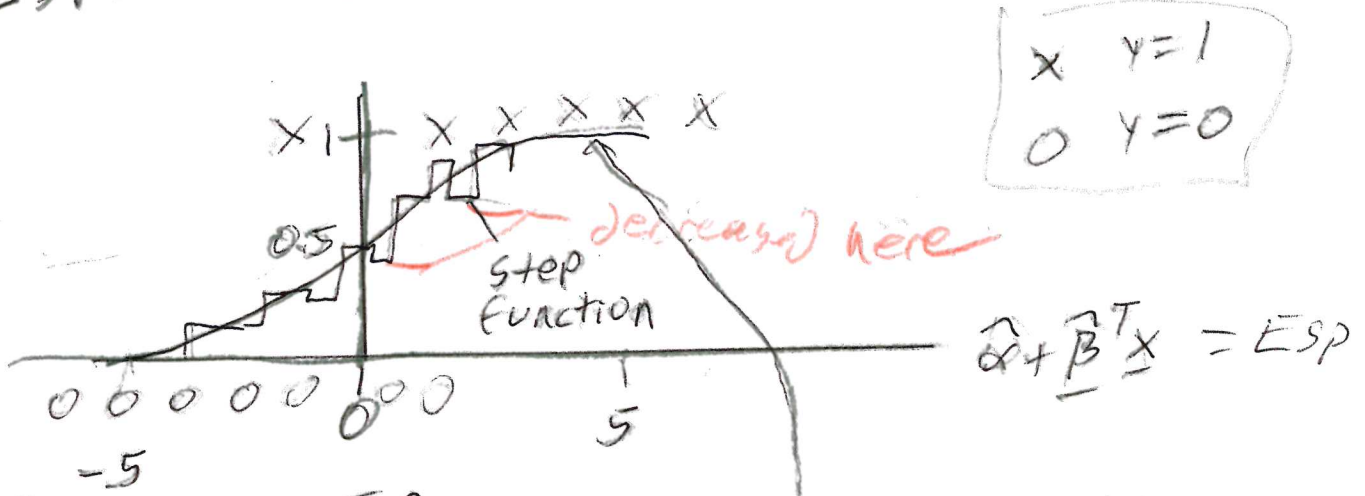 x y=1
o y=0
X 1 X X X X X
0.5
decreased here
step
function
α̂ + β̂ᵀx = ESP
0 0 0 0 0 0 0 0
-5 5